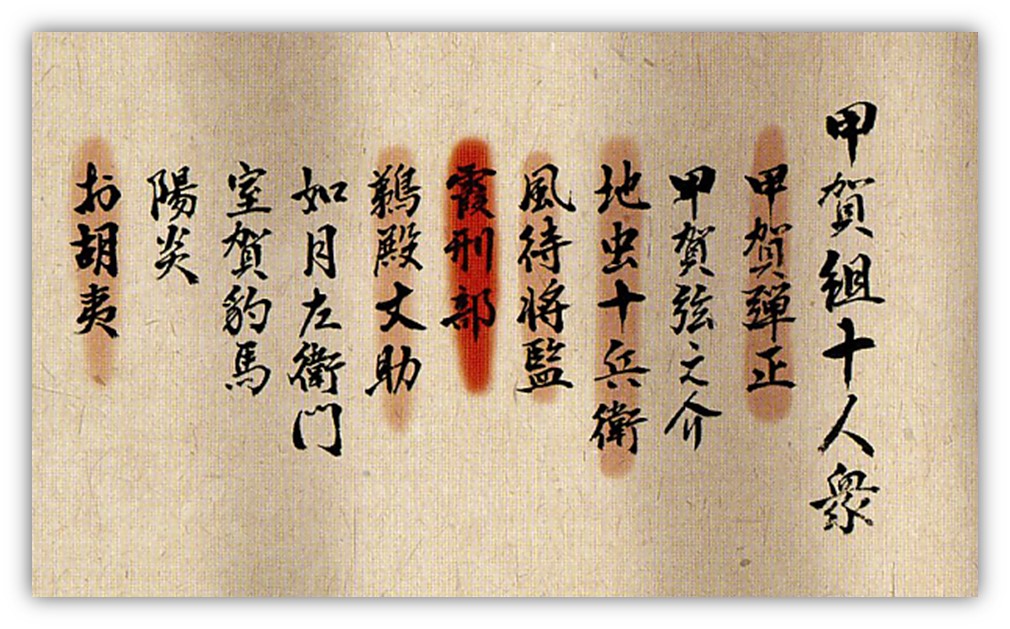 甲賀組十人衆
甲賀彈正
甲賀弦之介
地虫十兵衛
風待将監
霞刑部
鵜殿丈助
如月左衛門
室賀豹馬
陽炎
お胡夷